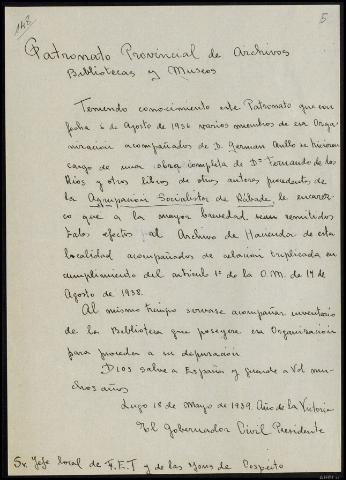 148
5
Patronato Provincial de Archivos
Bibliotecas y Museos
Teniendo conocimiento este Patronato que con
fecha 6 de Agosto de 1936 varios miembros de esa Orga-
nización acompañados de D. German se hicieron
cargo de una obra completa de Dn Fernando de los
Rios y otros libros de otros autores procedentes de
la Agrupacion Socialista de Rábade, le encarez-
co que a la mayor brevedad sean remitidos
tales efectos al Archivo de Hacienda de esta
localidad acompañados de relación triplicada en
cumplimiento del articulo 1º de la O.M. de 17 de
Agosto de 1938.
Al mismo tiempo servase acompañar inventario
de la Biblioteca que poseyere esa Organización
para proceder a su depuración
Dios salve a España y guarde a Vd mu-
chos años
Lugo 18 de Mayo de 1939. Año de la Victoria
El Gobernador Civil Presidente
Sr. Jefe local de F.E.T y de las Jons de Cospeito